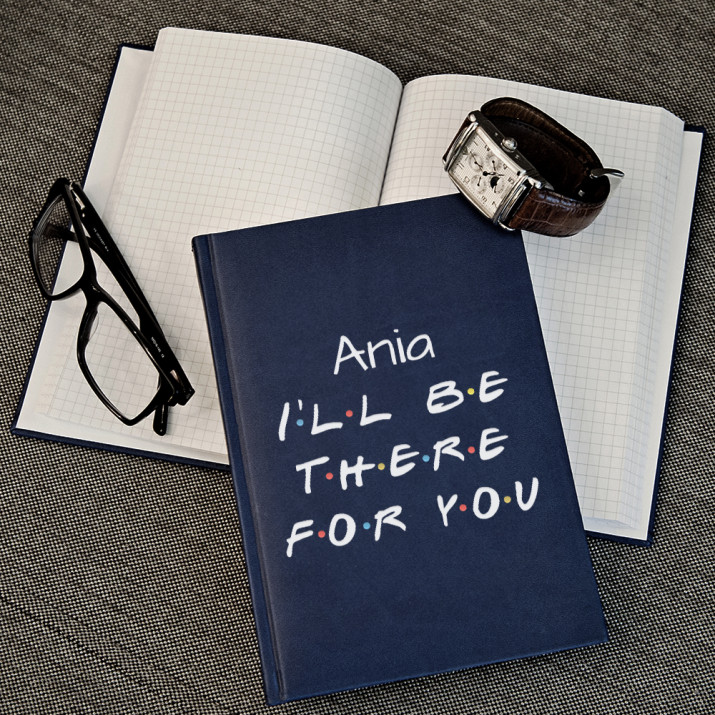 Ania
I'LL BE
THERE
FOR YOU